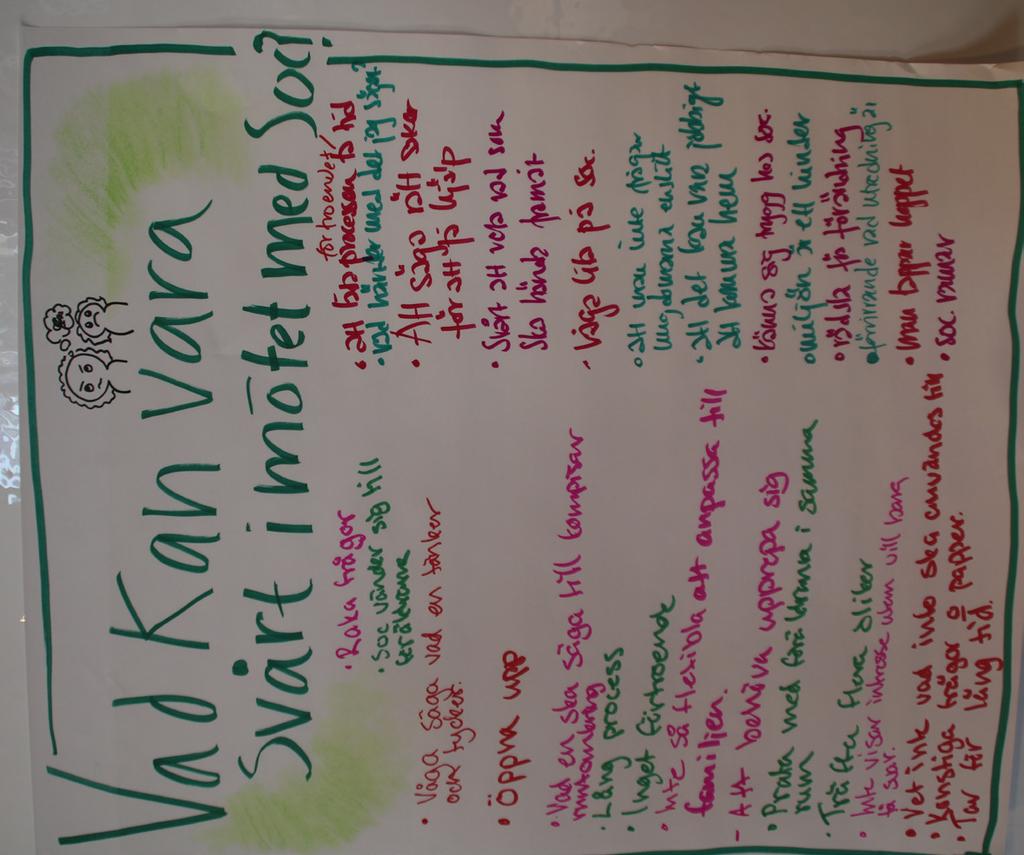 Vad Kan Vara
Svårt i mötet med Soc?
• Raka frågor
• Soc vänder sig till
föräldrarna
• Våga säga vad en tänker
och tycker.
• Öppna upp
• Vad en ska säga till kompisar
runtomkring
• Lång process
• Inget förtroende
• Inte så flexibla att anpassa till
familjen.
- Att behöva upprepa sig
• Prata med föräldrarna i samma
rum
• Träffa flera olika
• Inte visar intresse utan vill bara
få svar.
• Vet inte vad info ska användas till
• Konstiga frågor & papper.
• Tar för lång tid.
förtroendet/
• att processen tar tid
• vad händer med det jag säger?
• Att säga rätt saker
för att få hjälp
• Skönt att veta vad som
ska hända framåt
- våga lita på soc.
• att man inte frågar
ungdomarna enskilt
• att det kan vara jobbigt
att komma hem
• känna sig trygg hos soc.
• miljön är ett hinder
• rädsla för förändring
• förvirrande vad utredning är
• man tappar hoppet
• soc